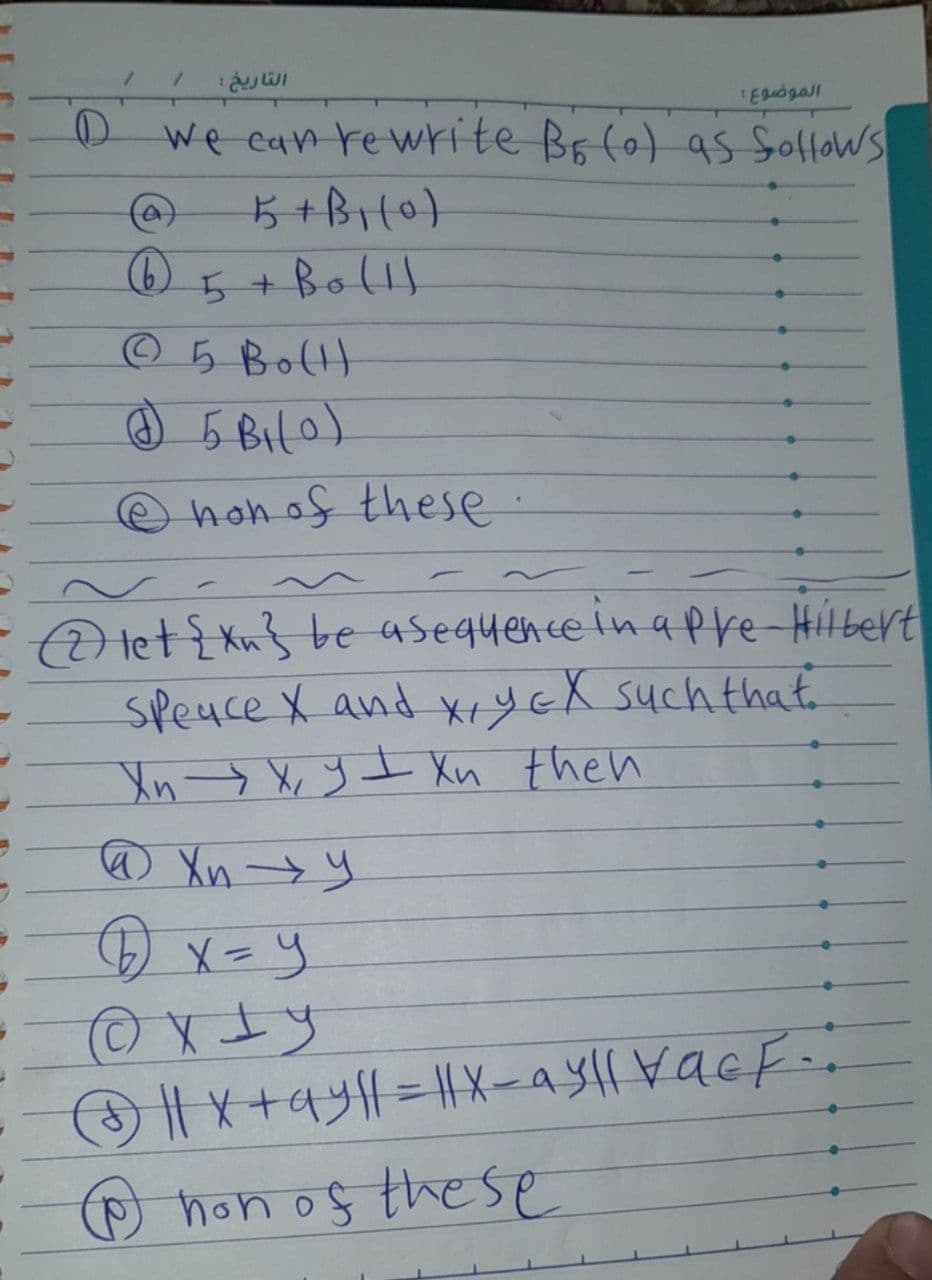 التاريخ : / /
الموضوع :
① We can rewrite B5(0) as follows
ⓐ 5+B1(0)
ⓑ 5 + B0(1)
ⓒ 5 B0(1)
ⓓ 5 B1(0)
ⓔ non of these .
② let {Xn} be a sequence in a pre-Hilbert
speace X and x, y ∈ X such that
Xn → X, y ⊥ Xn then
ⓐ Xn → y
ⓑ X = y
ⓒ X ⊥ y
ⓓ ||X+ay|| = ||X-ay|| ∀a∈F.
ⓔ non of these